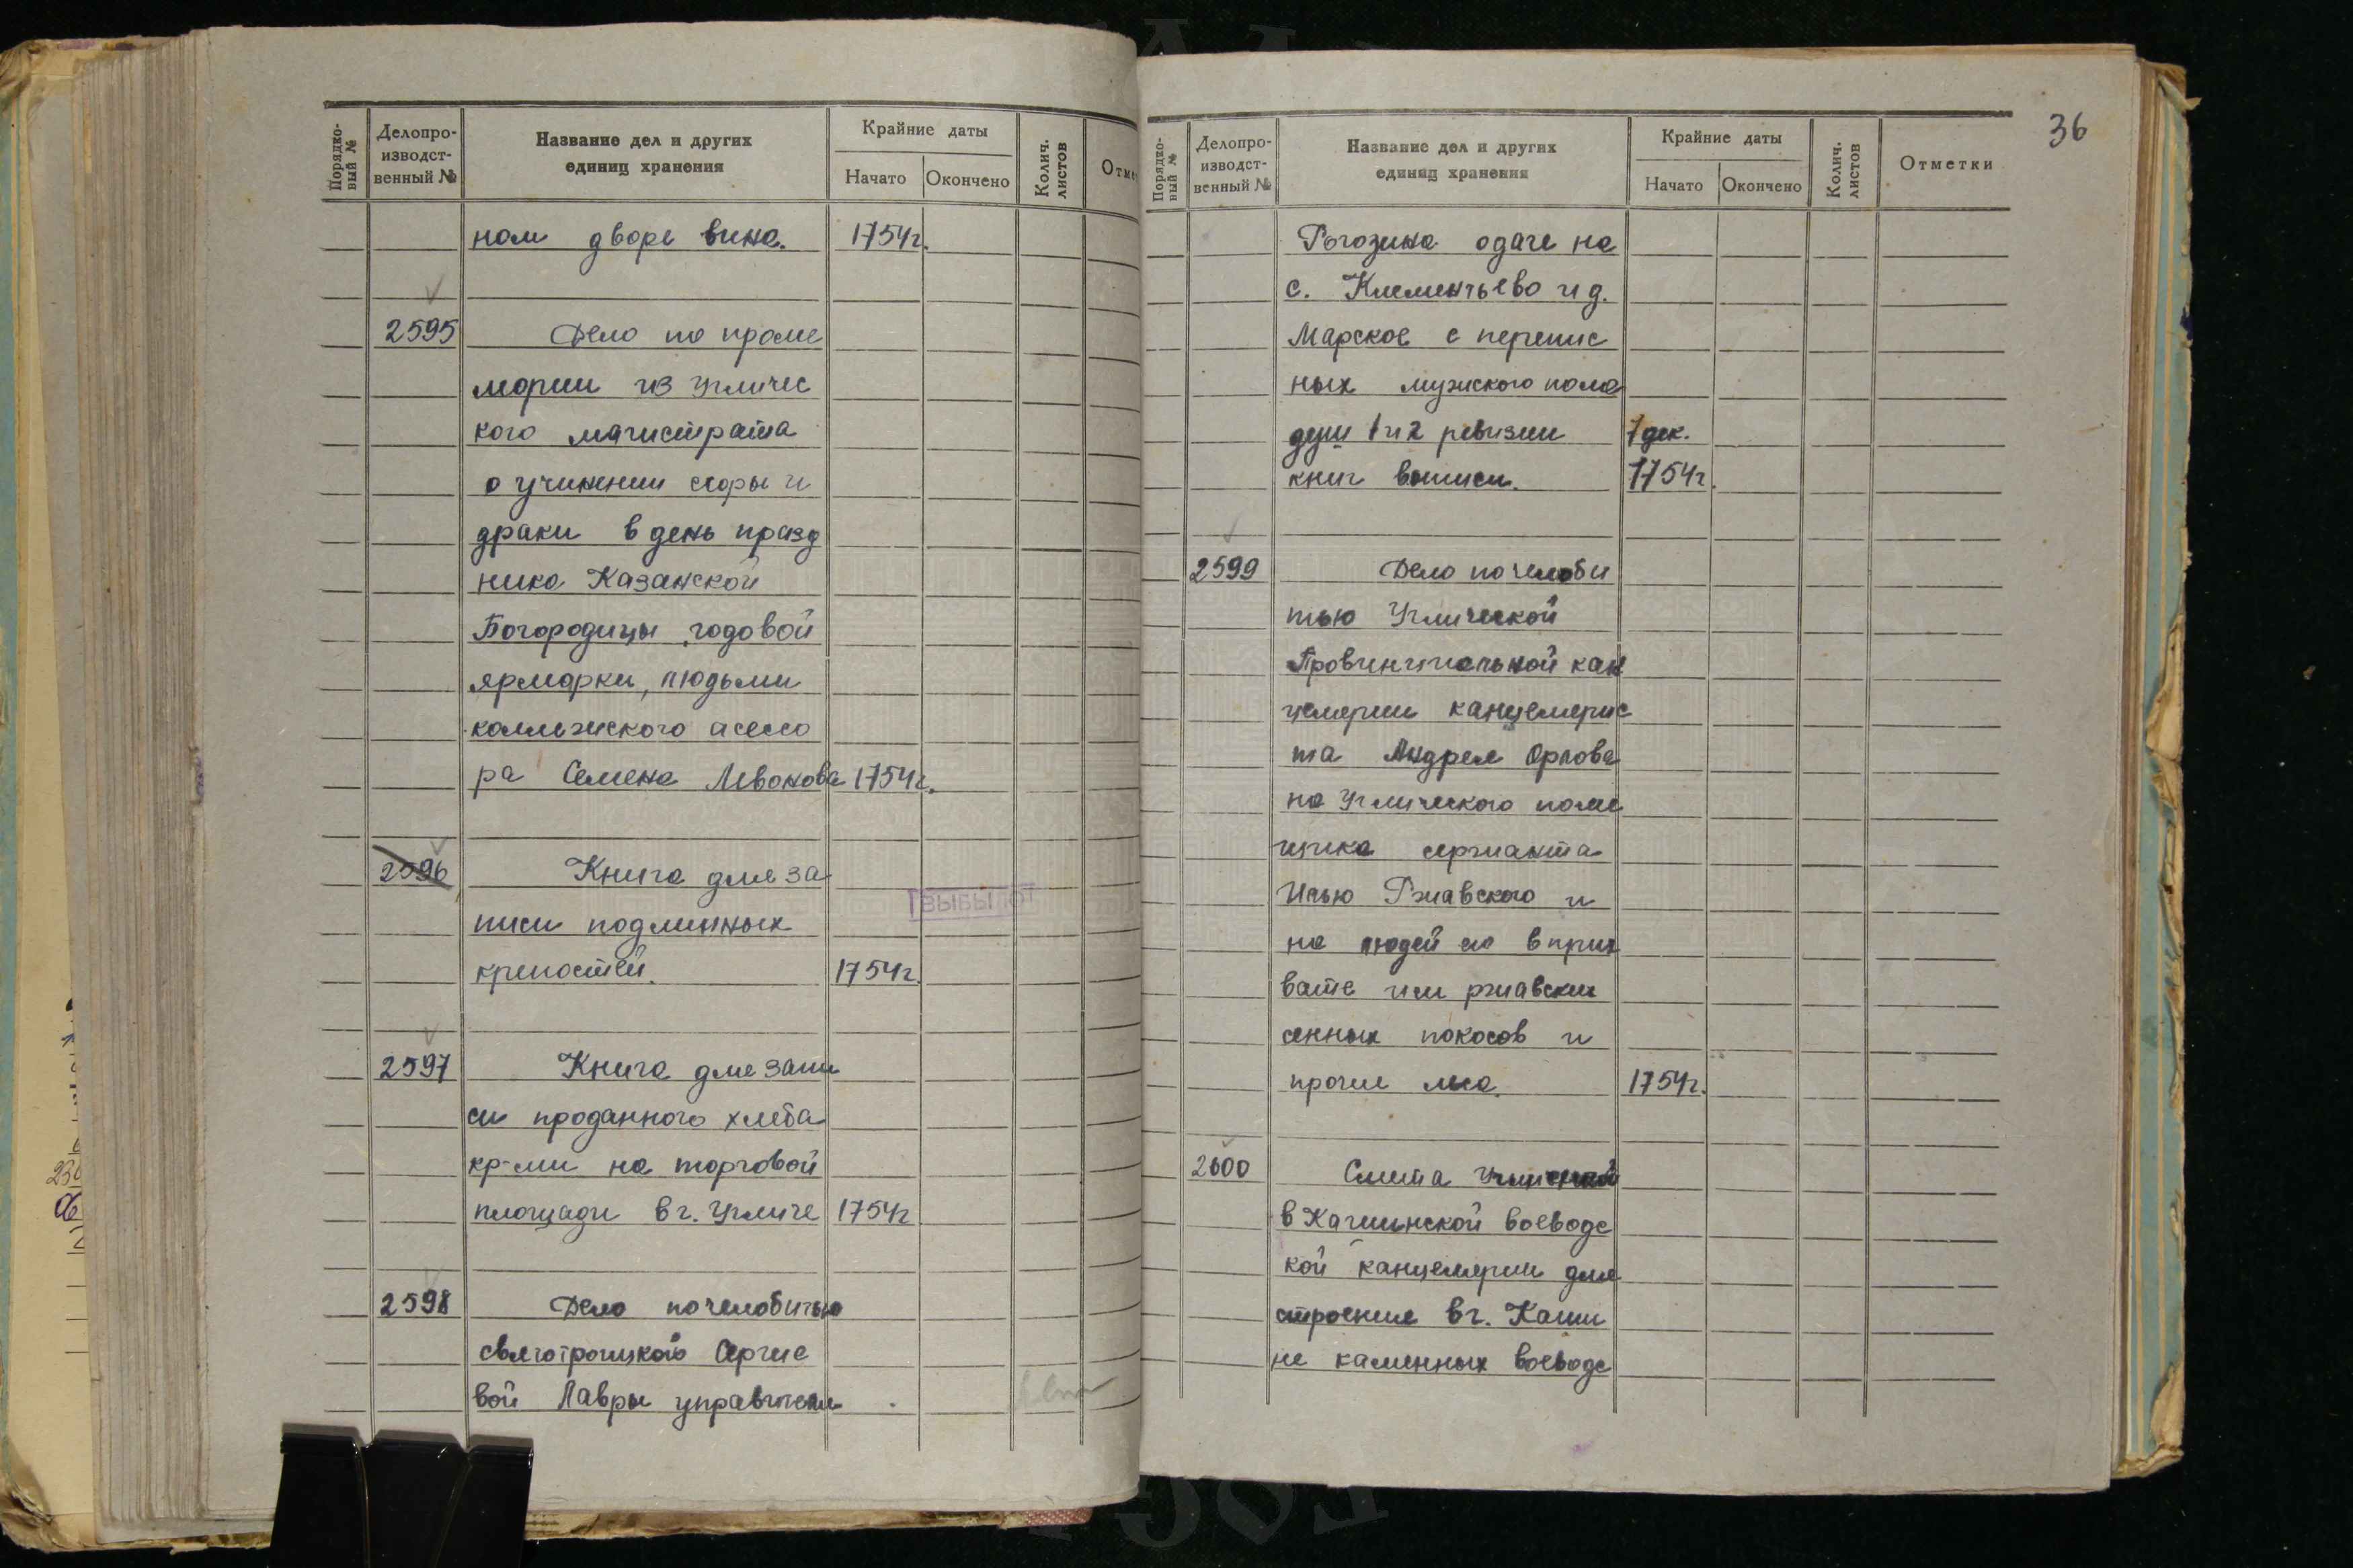 Порядко-
вый №
Делопро-
изводст-
венный №
Название дел и других
единиц хранения
Крайние даты
Начато
Окончено
Колич.
листов
Отме
ном дворе вина. 1754г.
2595 Дело по проме
мории из Угличес
кого магистрата
о учинении ссоры и
драки в день празд
ника Казанской
Богородицы годовой
ярмарки, людьми
коллежского асессо
ра Семена Левонова 1754г.
2596 Книга для за
писи подлинных
крепостей. 1754г.
ВЫБЫЛ
2597 Книга для запи
си проданного хлеба
кр-ми на торговой
площади в г. Угличе 1754г
2598 Дело по челобитью
святотроицкой Сергие
вой Лавры управители
36
Порядко-
ный №
Делопро-
изводст-
венный №
Название дел и других
единиц хранения
Крайние даты
Начато
Окончено
Колич.
листов
Отметки
Рогозина о даче на
с. Клементьево и д.
Марское с перепис
ных мужского пола
душ 1 и 2 ревизии 7 дек.
книг выписи. 1754г.
2599 Дело по челоби
тью Углической
Провинциальной кан
целярии канцелярис
та Андрея Орлова
на Углического поме
щика сержанта
Илью Ржавского и
на людей его в прих
вате им ржавским
сенных покосов и
прочие леса. 1754г.
2600 Смета
в Кашинской воеводс
кой канцелярии для
строение в г. Каши
не каменных воеводс